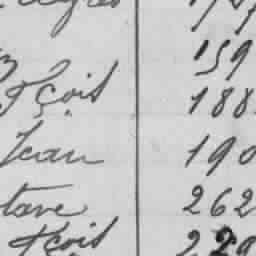 159
Fçois 188
Jean 190
tave 262
Fçois 229